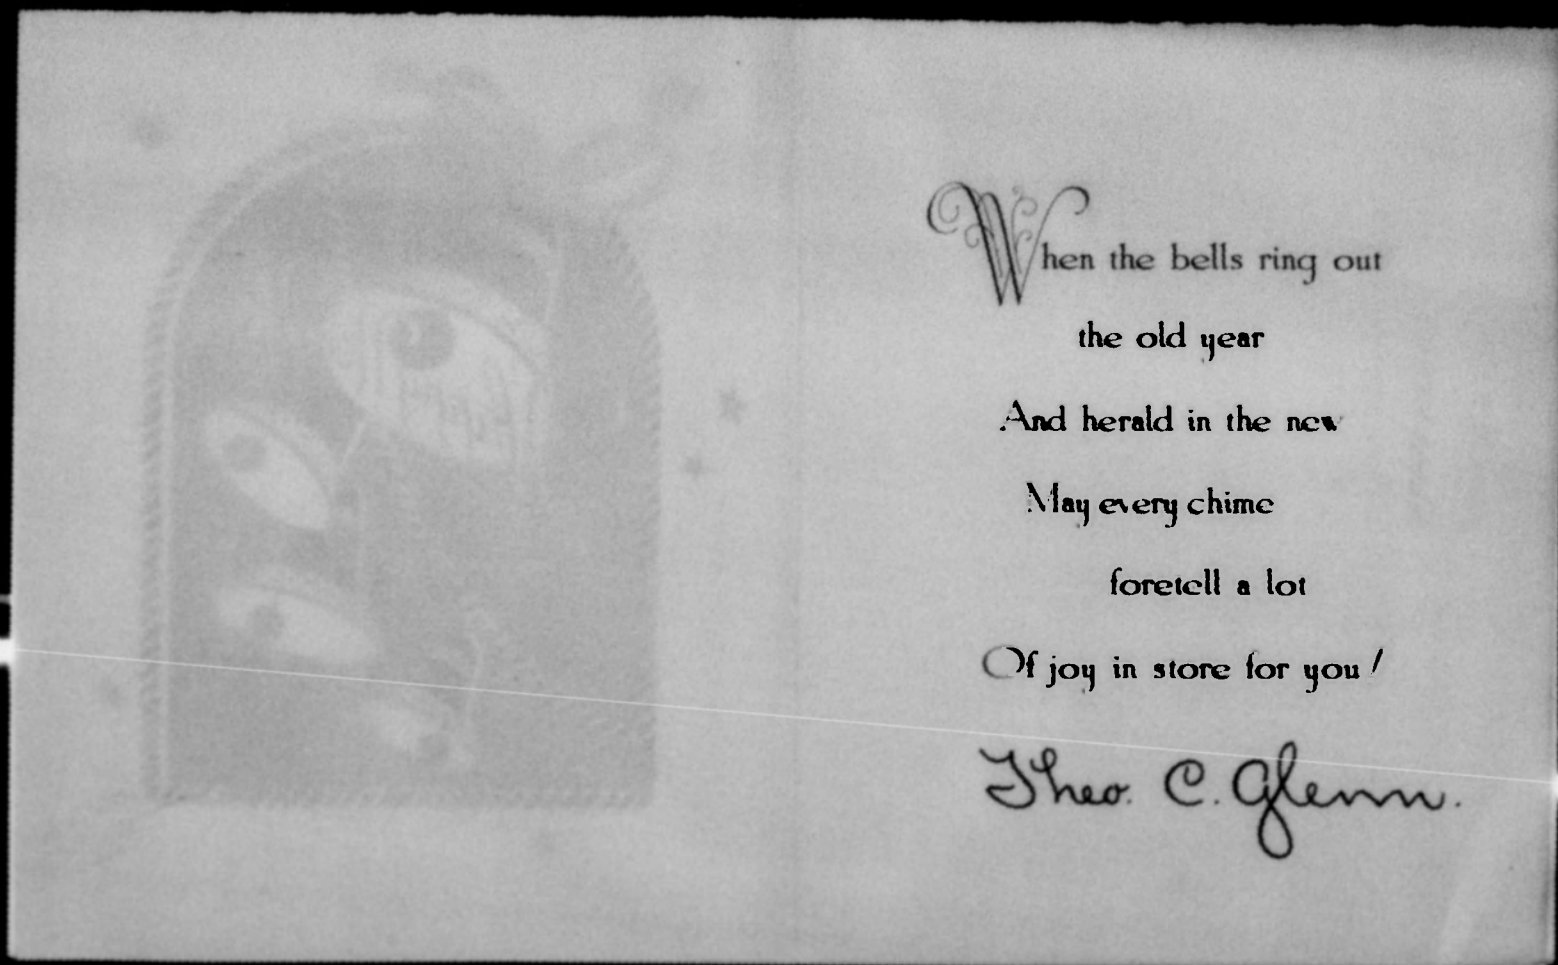 When the bells ring out
the old year
And herald in the new
May every chime
foretell a lot
Of joy in store for you!
Theo. C. Glenn.